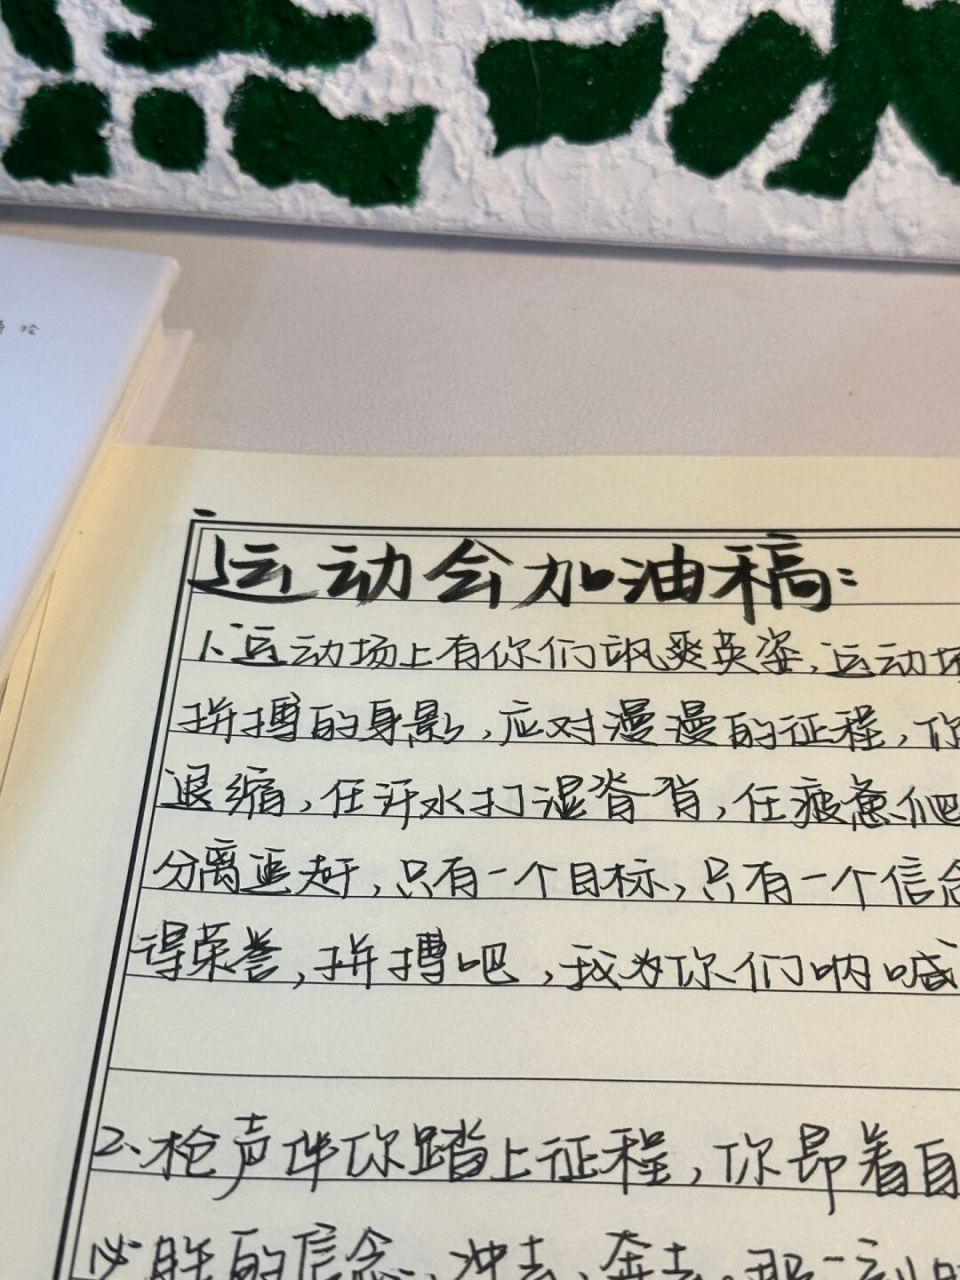 绘
运动会加油稿:
1、运动场上有你们飒爽英姿,运动场
拼搏的身影,应对漫漫的征程,你
退缩,任汗水打湿脊背,任疲惫爬
分离追赶,只有一个目标,只有一个信念
得荣誉,拼搏吧,我为你们呐喊
2、枪声伴你踏上征程,你昂着自
必胜的信念,冲去,奔去,那一刻